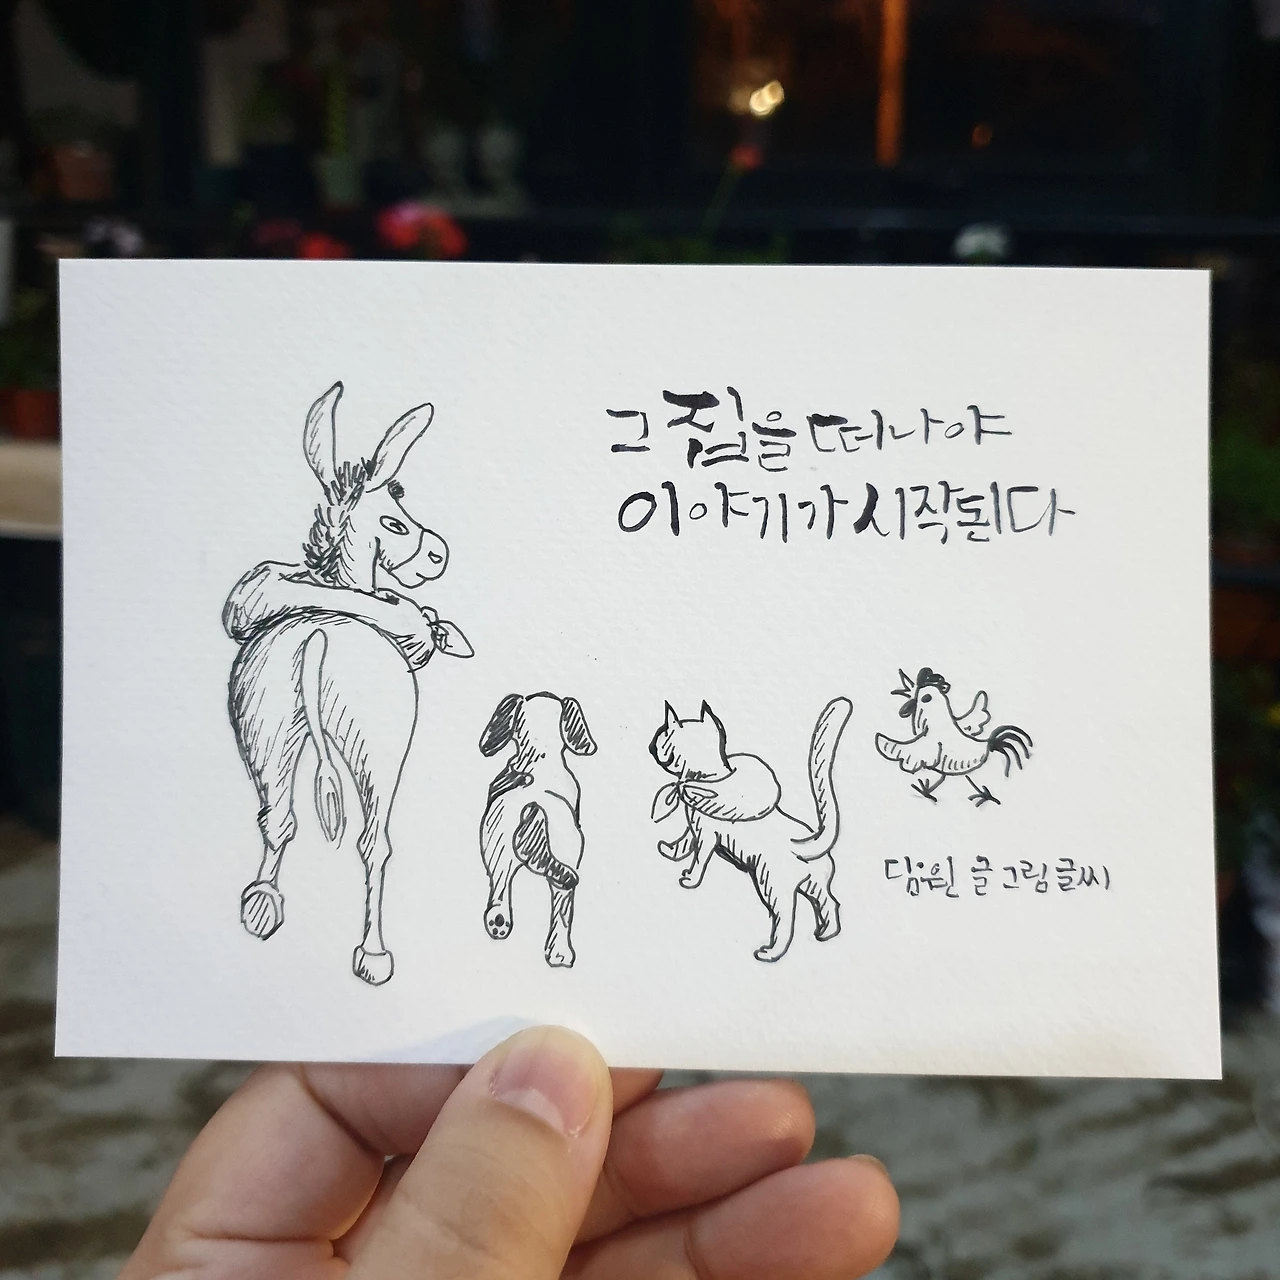 그 집을 떠나야
이야기가 시작된다
글 그림 글씨